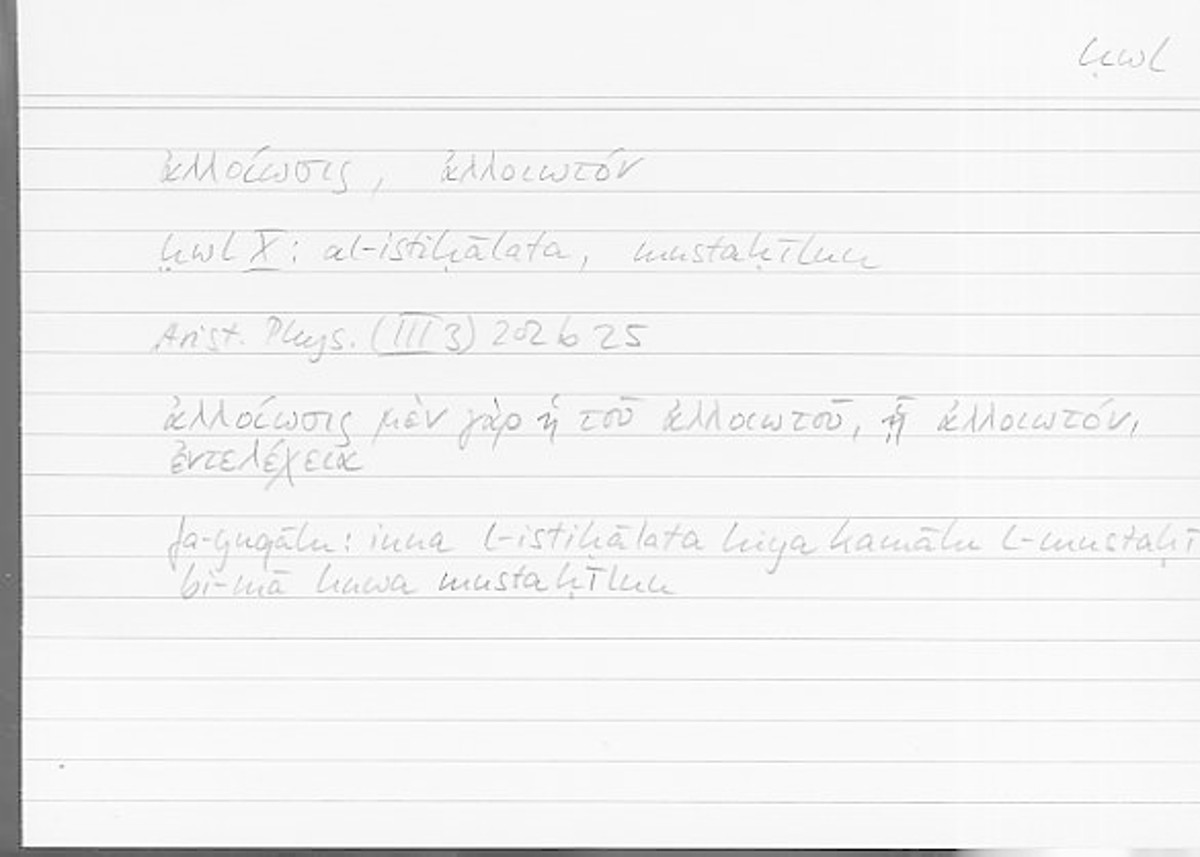 ḥwl
ἀλλοίωσις, ἀλλοιωτόν
ḥwl X: al-istiḥālata, mustaḥīlun
Arist. Phys. (III 3) 202 b 25
ἀλλοίωσις μὲν γὰρ ἡ τοῦ ἀλλοιωτοῦ, ᾗ ἀλλοιωτόν,
ἐντελέχεια
fa-yuqālu: inna l-istiḥālata hiya kamālu l-mustaḥī
bi-mā huwa mustaḥīlun